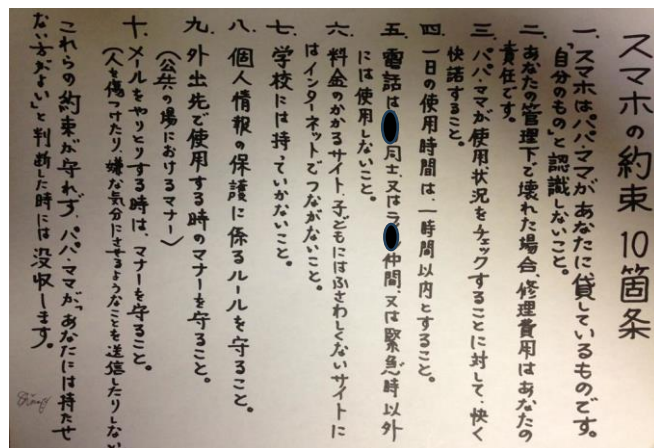 スマホの約束 10箇条
一、スマホはパパ・ママがあなたに貸しているものです。
「自分のもの」と認識しないこと。
二、あなたの管理下で壊れた場合、修理費用はあなたの
責任です。
三、パパ・ママが使用状況をチェックすることに対して、快く
快諾すること。
四、一日の使用時間は、一時間以内とすること。
五、電話は 同士、又はラ 仲間、又は緊急時以外
には使用しないこと。
六、料金のかかるサイト、子どもにはふさわしくないサイトに
はインターネットでつながないこと。
七、学校には持っていかないこと。
八、個人情報の保護に係るルールを守ること。
九、外出先で使用する時のマナーを守ること。
（公共の場におけるマナー）
十、メールをやりとりする時は、マナーを守ること。
（人を傷つけたり、嫌な気分にさせるようなことを送信したりしない
これらの約束が守れず、パパ・ママが、「あなたには持たせ
ない方がよい」と判断した時には没収します。